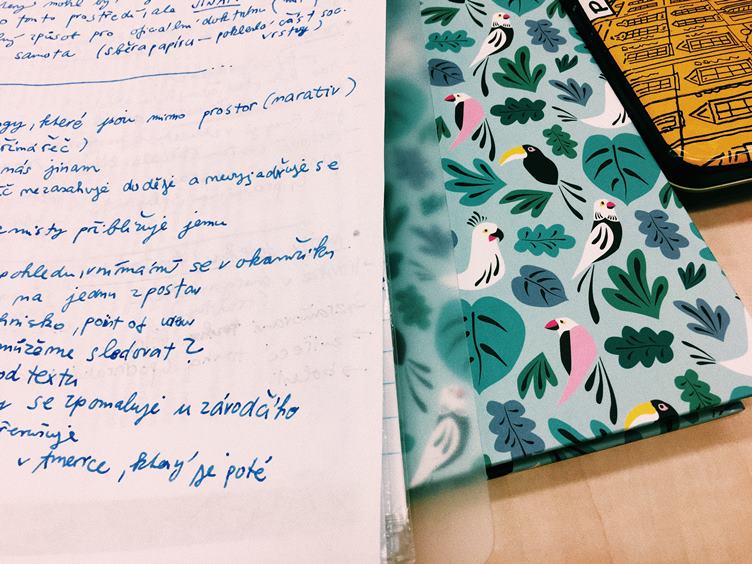 tomto prostředí, ale JINAK
způsob pro oficiální
samota (sběr papíru – pohled část soc. vrstvy)
které jsou mimo prostor (narativ)
přímá řeč)
nás jinam
nezasahuje do děje a nevyjadřuje se
místy přibližuje jemu
pohledu, vnímání se v okamžiku
na jednu z postav
ohnisko, point of view
můžeme sledovat 2
od textu
se zpomaluje u závodčího
v Americe, který je poté
P